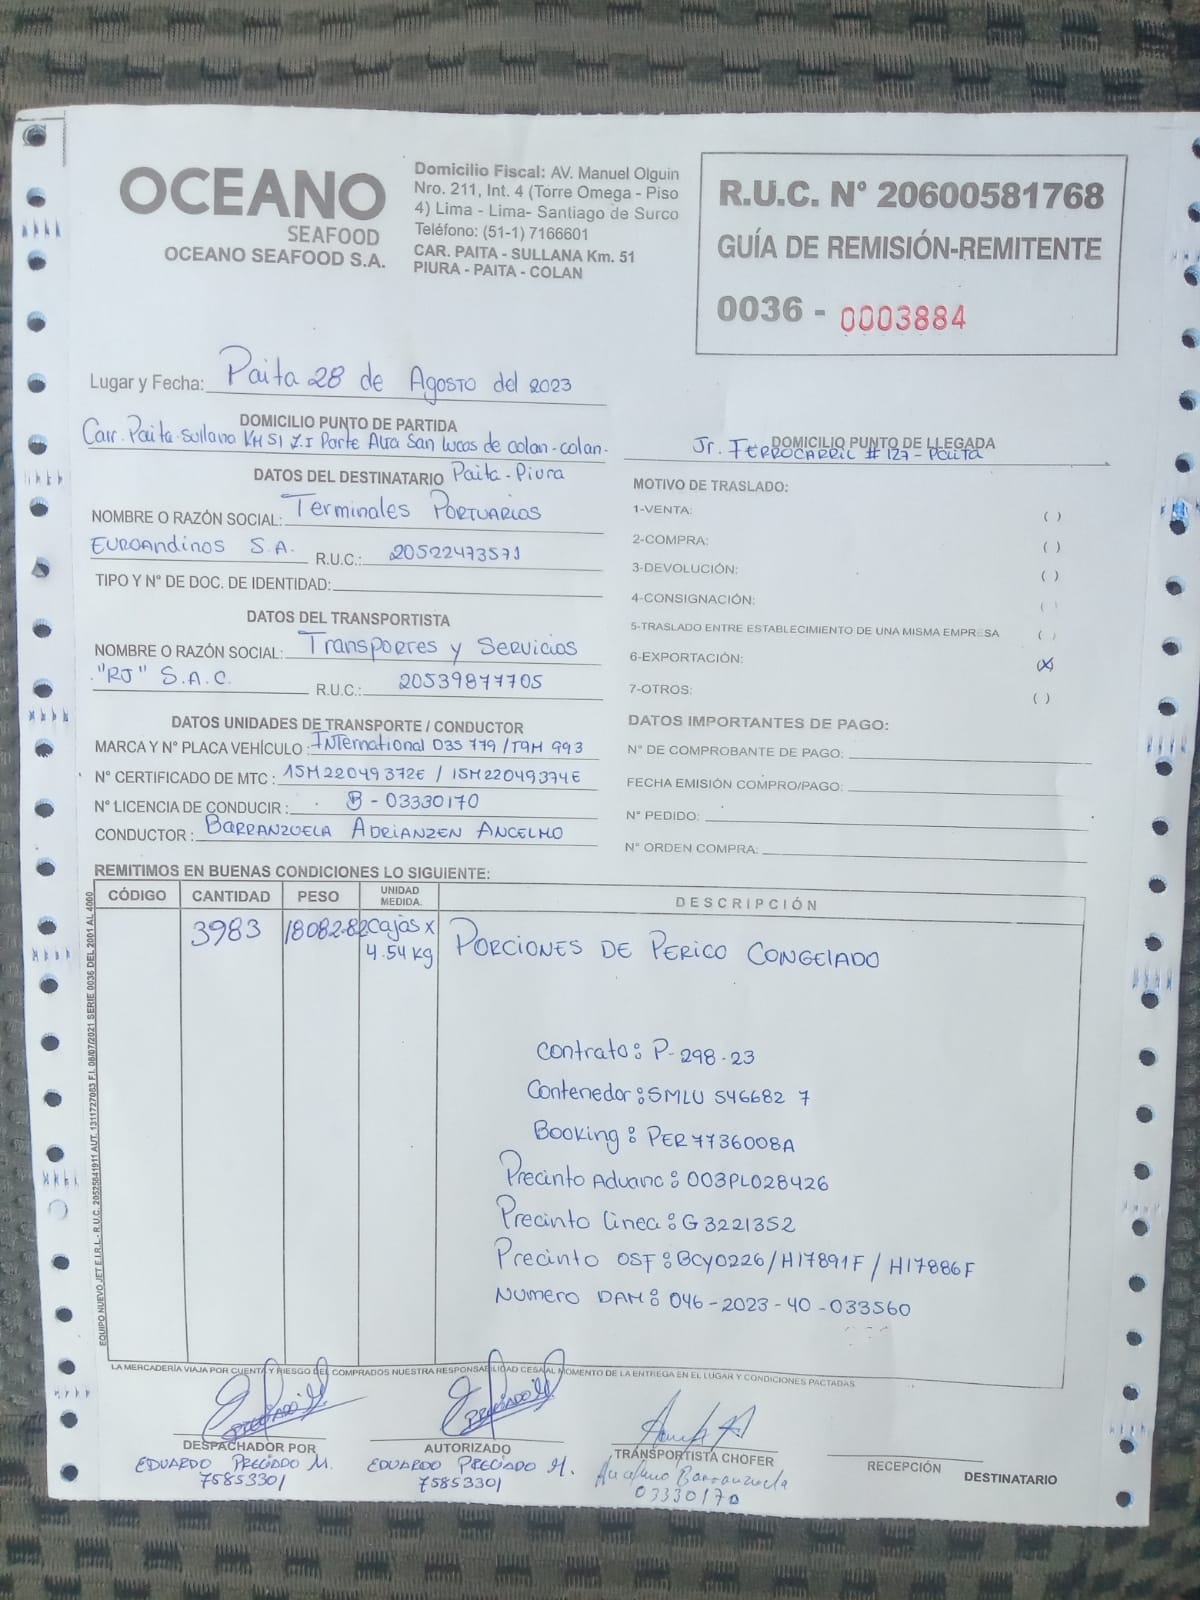 OCEANO
SEAFOOD
OCEANO SEAFOOD S.A.
Domicilio Fiscal: AV. Manuel Olguin
Nro. 211, Int. 4 (Torre Omega - Piso
4) Lima - Lima- Santiago de Surco
Teléfono: (51-1) 7166601
CAR. PAITA - SULLANA Km. 51
PIURA - PAITA - COLAN
R.U.C. N° 20600581768
GUÍA DE REMISIÓN-REMITENTE
0036 - 0003884
Lugar y Fecha: Paita 28 de Agosto del 2023
DOMICILIO PUNTO DE PARTIDA
Carr. Paita-Sullana KM 51 Z.I Parte Alta San Lucas de colan-colan-
DATOS DEL DESTINATARIO Paita - Piura
NOMBRE O RAZÓN SOCIAL: Terminales PORTUARIOS
EUROAndinos S.A. R.U.C.: 20522473571
TIPO Y N° DE DOC. DE IDENTIDAD:
DATOS DEL TRANSPORTISTA
NOMBRE O RAZÓN SOCIAL: Transpores y Servicios
"RJ" S.A.C. R.U.C.: 20539877705
DATOS UNIDADES DE TRANSPORTE / CONDUCTOR
MARCA Y N° PLACA VEHÍCULO : INTernational D3S 779 / T9M 993
N° CERTIFICADO DE MTC : 15M22049372E / 15M22049374E
N° LICENCIA DE CONDUCIR : B - 03330170
CONDUCTOR : BARRANZUELA ADRIANZEN ANCELMO
DOMICILIO PUNTO DE LLEGADA
Jr. FERROCARRIL # 127 - Paita
MOTIVO DE TRASLADO:
1-VENTA: ( )
2-COMPRA: ( )
3-DEVOLUCIÓN: ( )
4-CONSIGNACIÓN: ( )
5-TRASLADO ENTRE ESTABLECIMIENTO DE UNA MISMA EMPRESA ( )
6-EXPORTACIÓN: (X)
7-OTROS: ( )
DATOS IMPORTANTES DE PAGO:
N° DE COMPROBANTE DE PAGO:
FECHA EMISIÓN COMPRO/PAGO:
N° PEDIDO:
N° ORDEN COMPRA:
REMITIMOS EN BUENAS CONDICIONES LO SIGUIENTE:
CÓDIGO CANTIDAD PESO UNIDAD MEDIDA. DESCRIPCIÓN
3983 18082.82 Cajas x
4.54 kg PORCIONES DE PERICO CONGELADO
Contrato: P-298-23
Contenedor: SMLU 546682 7
Booking: PER7736008A
Precinto Aduana: 003PL028426
Precinto Linea: G3221352
Precinto OSF: BCY0226/H17891F / H17886F
Numero DAM: 046-2023-40-033560
EQUIPO NUEVO JET E.I.R.L.- R.U.C. 20525841911 AUT. 1311727083 F.I. 08/07/2021 SERIE 0036 DEL 2001 AL 4000
LA MERCADERÍA VIAJA POR CUENTA Y RIESGO DEL COMPRADOS NUESTRA RESPONSABILIDAD CESA AL MOMENTO DE LA ENTREGA EN EL LUGAR Y CONDICIONES PACTADAS
DESPACHADOR POR
EDUARDO PRECIADO M.
75853301
AUTORIZADO
EDUARDO PRECIADO M.
75853301
TRANSPORTISTA CHOFER
Ancelmo Barranzuela
03330170
RECEPCIÓN
DESTINATARIO